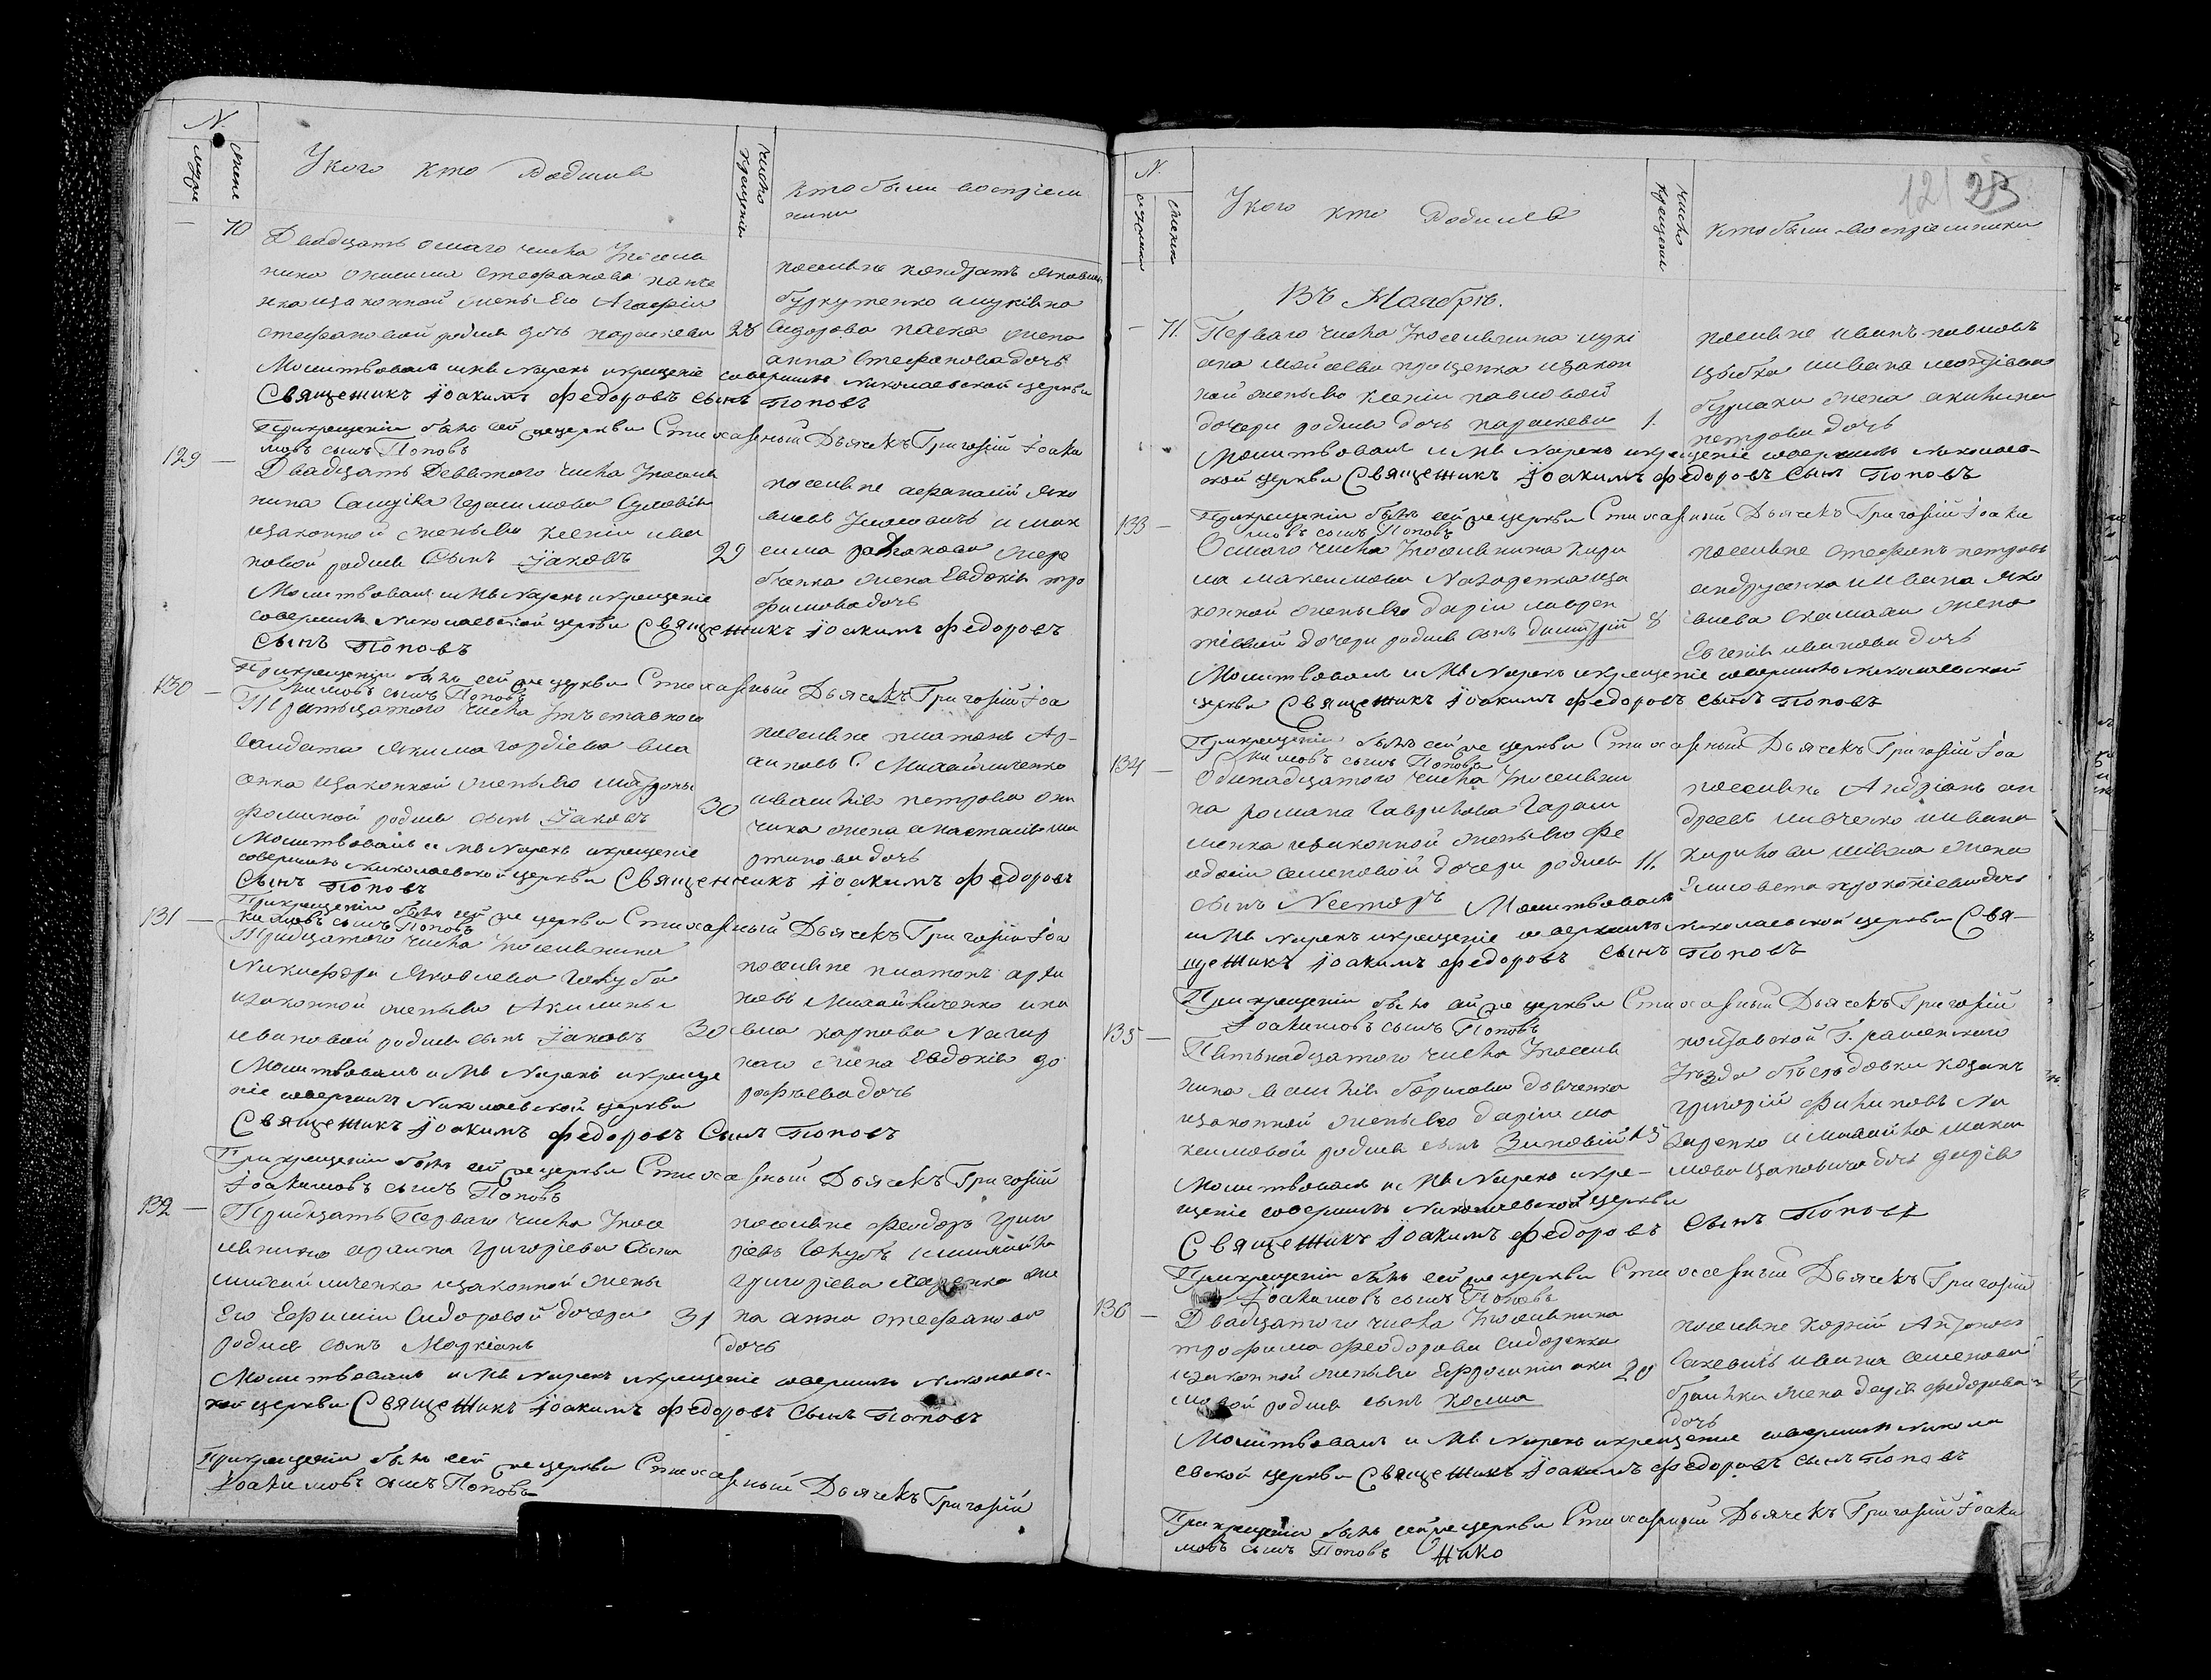 N.
мужеска
женска
У кого кто родился
число крещенія
кто были воспріем
ники
70
Двадцать осмаго числа У посели
нина Онисима Стефанова
и законной жены Его Агафіи
Стефановой родилась дочь параскева 28
поселяне кондратъ Яковлевъ
и
Сидорова жена
анна Стефанова дочь
Молитвовалъ имя нарекъ и крещеніе совершилъ Николаевской церкви
Священникъ Іоакимъ Федоровъ сынъ Поповъ
При крещеніи былъ сей же церкви Стихарный Дьячекъ Григорій Іоаки
мовъ сынъ Поповъ
129
Двадцать Девятаго числа У посел
нина Герасимова
и законной жены Его Ксеніи ива
новой родился Сынъ Іаковъ 29
поселяне афанасій Яко
влевъ и мак
сима жена Евдокія тро
фимова дочь
Молитвовалъ имя нарекъ и крещеніе
совершилъ Николаевской церкви Священникъ Іоакимъ Федоровъ
Сынъ Поповъ
При крещеніи былъ сей же церкви Стихарный Дьячекъ Григорій Іоа
кимовъ сынъ Поповъ
130
Тритцатого числа У отставного
солдата Якима гордіева
и законной жены Его
Фоминой родился сынъ Іаковъ 30
поселяне платонъ Ар-
хиповъ С. Михайличенко
петрова
жена анастасія ма
ртинова дочь
Молитвовалъ имя нарекъ и крещеніе
совершилъ Николаевской церкви Священникъ Іоакимъ Федоровъ
Сынъ Поповъ
При крещеніи былъ сей же церкви Стихарный Дьячекъ Григорій Іоа
кимовъ сынъ Поповъ
131
Тридцатого числа У поселянина
Никифора Яковлева Голуба
и законной жены Его Акилины
ивановой родился сынъ Іаковъ 30
поселяне платонъ архи
повъ Михайличенко и па
вла карпова
жена Евдокія до
рофѣева дочь
Молитвовалъ имя нарекъ и креще
ніе совершилъ Николаевской церкви
Священникъ Іоакимъ Федоровъ Сынъ Поповъ
При крещеніи былъ сей же церкви Стихарный Дьячекъ Григорій
Іоакимовъ сынъ Поповъ
132
Тридцать Перваго числа У посе
лянина Григоріева Сына
михайличенка и законной жены
Его Ефиміи Сидоровой дочери 31
родился сынъ Маркіанъ
поселяне Феодоръ Григо
ріевъ Голубъ и михайла
григоріева же
на анна стефанова
дочь
Молитвовалъ имя нарекъ и крещеніе совершилъ Николаев-
кой церкви Священникъ Іоакимъ Федоровъ Сынъ Поповъ
При крещеніи былъ сей же церкви Стихарный Дьячекъ Григорій
Іоакимовъ сынъ Поповъ
121 23
N.
мужска
женска
У кого кто родился
число крещенія
кто были воспріемники
Въ Ноябрѣ.
71.
Перваго числа У поселянина луки
ана проценка и закон
ной жены Его Ксеніи павловой
дочери родилась дочь параскева 1.
поселяне иванъ павловъ
цыбка и ивана
бурлаки жена акилина
петрова дочь
Молитвовалъ имя нарекъ и крещеніе совершилъ николаев-
ской церкви Священникъ Іоакимъ Федоровъ Сынъ Поповъ
При крещеніи былъ сей же церкви Стихарный Дьячекъ Григорій Іоаки
мовъ сынъ Поповъ
133
Осмаго числа У поселянина кири
ла максимова и за
конной жены Его даріи лаврен
тіевой дочери родился сынъ димитрій 8
поселяне стефанъ петровъ
андрусенко и ивана яко
влева жена
Евгенія иванова дочь
Молитвовалъ и имя нарекъ и крещеніе совершилъ николаевской
церкви Священникъ Іоакимъ Федоровъ сынъ Поповъ
При крещеніи былъ сей же церкви Стихарный Дьячекъ Григорій Іоа
кимовъ сынъ Поповъ
134
Одинадцатого числа У поселяни
на романа Гаврилова Гараси
менка и законной жены Его Фе
одосіи семеновой дочери родился 11.
сынъ Несторъ Молитвовалъ
поселяне Андріанъ ан
дреевъ и ивана
кирилова жена
Елисовета прокопіева дочь
имя нарекъ и крещеніе совершилъ николаевской церкви Свя-
щенникъ Іоакимъ Федоровъ Сынъ Поповъ
При крещеніи былъ сей же церкви Стихарный Дьячекъ Григорій
Іоакимовъ сынъ Поповъ
135
Пятьнадцатого числа У посели
нина борисова довченка
и законной жены Его даріи ма
ксимовой родился сынъ Зиновій 15
полтавской Г. раменского
Уѣзда козакъ
григорій филиповъ На
заренко и михайла макси
мова дочь дарія
Молитвовалъ и имя нарекъ и кре-
щеніе совершилъ Николаевской церкви
Священникъ Іоакимъ Федоровъ Сынъ Поповъ
При крещеніи былъ сей же церкви Стихарный Дьячекъ Григорій
Іоакимовъ сынъ Поповъ
136
Двадцатого числа У поселянина
трофима Феодорова сидоренка
и законной жены Его Ефросиніи аки
мовой родился сынъ Косма 20
поселяне корній Антонов
и ивана семенова
жена дарія федорова
дочь
Молитвовалъ и имя нарекъ и крещеніе совершилъ никола
евской церкви Священникъ Іоакимъ Федоровъ сынъ Поповъ
При крещеніи былъ сей же церкви Стихарный Дьячекъ Григорій Іоаки
мовъ сынъ Поповъ